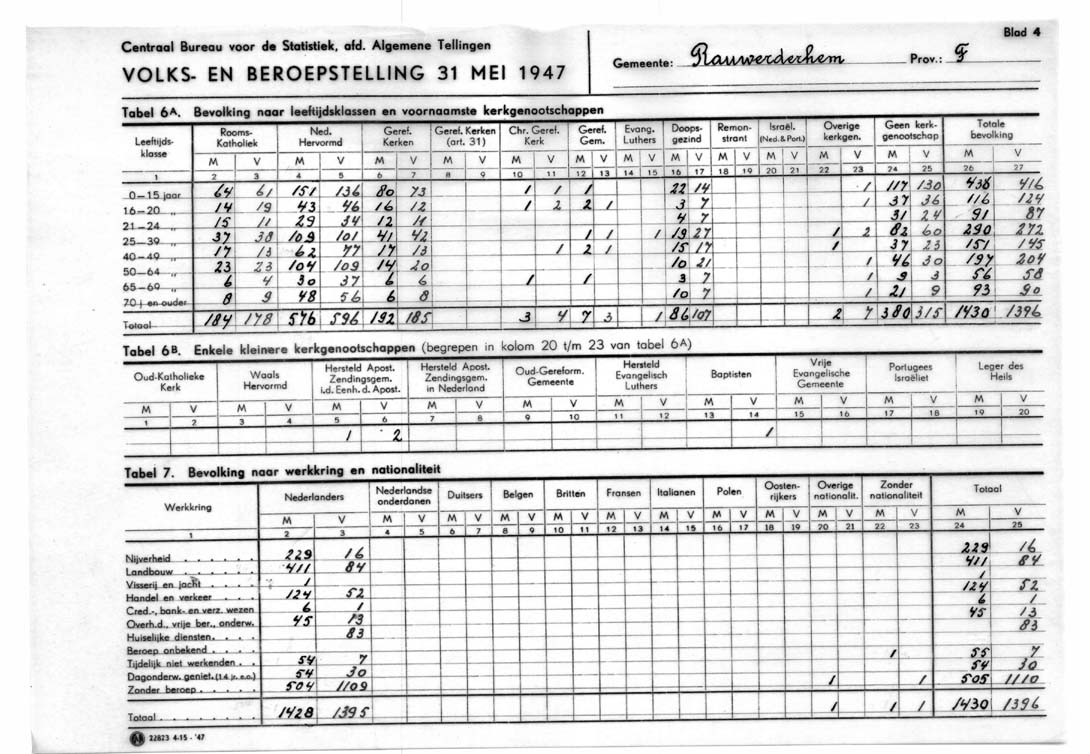 Blad 4
Centraal Bureau voor de Statistiek, afd. Algemene Tellingen
VOLKS- EN BEROEPSTELLING 31 MEI 1947
Gemeente: Rauwerderhem Prov.: F
Tabel 6A. Bevolking naar leeftijdsklassen en voornaamste kerkgenootschappen
Leeftijds-klasse | Rooms-Katholiek | Ned. Hervormd | Geref. Kerken | Geref. Kerken (art. 31) | Chr. Geref. Kerk | Geref. Gem. | Evang. Luthers | Doops-gezind | Remon-strant | Israël. (Ned. & Port.) | Overige kerkgen. | Geen kerk-genootschap | Totale bevolking
M V M V M V M V M V M V M V M V M V M V M V M V M V
1 2 3 4 5 6 7 8 9 10 11 12 13 14 15 16 17 18 19 20 21 22 23 24 25 26 27
0-15 jaar 64 61 151 136 80 73 1 1 1 22 14 1 117 130 436 416
16-20 „ 14 19 43 46 16 12 1 2 2 1 3 7 1 37 36 116 124
21-24 „ 15 11 29 34 12 11 4 7 31 24 91 87
25-39 „ 37 38 109 101 41 42 1 1 1 19 27 1 2 82 60 290 272
40-49 „ 17 13 62 77 17 13 1 2 1 15 17 1 37 23 151 145
50-64 „ 23 23 104 109 14 20 10 21 1 46 30 197 204
65-69 „ 6 4 30 37 6 6 1 1 3 7 1 9 3 56 58
70 j en ouder 8 9 48 56 6 8 10 7 1 21 9 93 90
Totaal 184 178 576 596 192 185 3 4 7 3 1 86 107 2 7 380 315 1430 1396
Tabel 6B. Enkele kleinere kerkgenootschappen (begrepen in kolom 20 t/m 23 van tabel 6A)
Oud-Katholieke Kerk | Waals Hervormd | Hersteld Apost. Zendingsgem. i.d. Eenh. d. Apost. | Hersteld Apost. Zendingsgem. in Nederland | Oud-Gereform. Gemeente | Hersteld Evangelisch Luthers | Baptisten | Vrije Evangelische Gemeente | Portugees Israëliet | Leger des Heils
M V M V M V M V M V M V M V M V M V M V
1 2 3 4 5 6 7 8 9 10 11 12 13 14 15 16 17 18 19 20
1 2 1
Tabel 7. Bevolking naar werkkring en nationaliteit
Werkkring | Nederlanders | Nederlandse onderdanen | Duitsers | Belgen | Britten | Fransen | Italianen | Polen | Oosten-rijkers | Overige nationalit. | Zonder nationaliteit | Totaal
M V M V M V M V M V M V M V M V M V M V M V M V
1 2 3 4 5 6 7 8 9 10 11 12 13 14 15 16 17 18 19 20 21 22 23 24 25
Nijverheid . . . . . . 229 16 229 16
Landbouw . . . . . . 411 84 411 84
Visserij en jacht . . . . 1 1
Handel en verkeer . . . . 124 52 124 52
Cred.-, bank- en verz. wezen 6 1 6 1
Overh.d., vrije ber., onderw. 45 13 45 13
Huiselijke diensten. . . . 83 83
Beroep onbekend . . . .
Tijdelijk niet werkenden . . 54 7 1 55 7
Dagonderw. geniet. (14 jr. e.o.) 54 30 54 30
Zonder beroep . . . . . 504 1109 1 1 505 1110
Totaal . . . . . . . . 1428 1395 1 1 1 1430 1396
22823 4-15 - '47